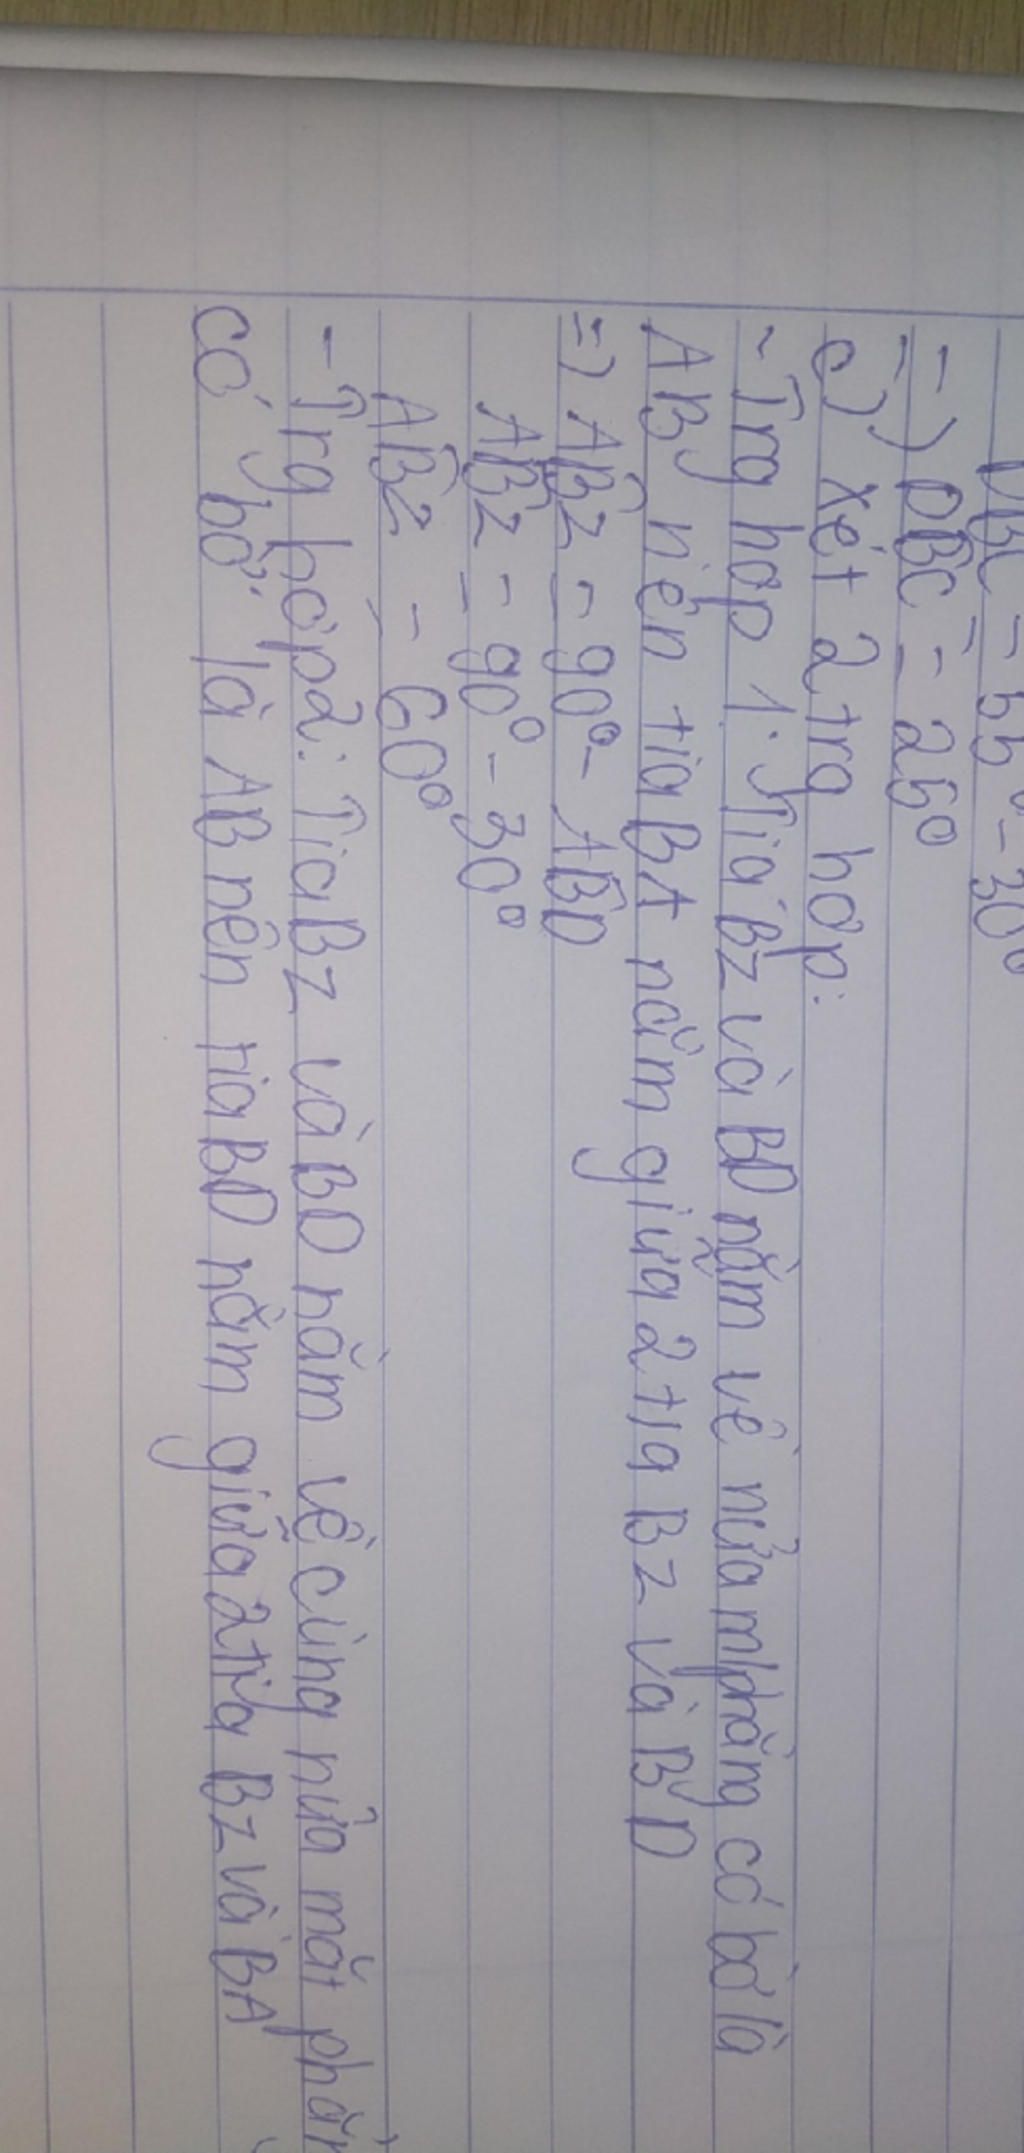 DBC = 55° - 30°
=) DBC = 25°
c) Xét 2 trg hợp:
- Trg hợp 1: Tia Bz và BD nằm về nửa m/phẳng có bờ là
AB, nên tia BA nằm giữa 2 tia Bz và BD
=) AB̂z = 90° - AB̂D
AB̂z = 90° - 30°
AB̂z = 60°
- Trg hợp 2: Tia Bz và BD nằm về cùng nửa mặt phẳn
có bờ là AB nên tia BD nằm giữa 2 tia Bz và BA